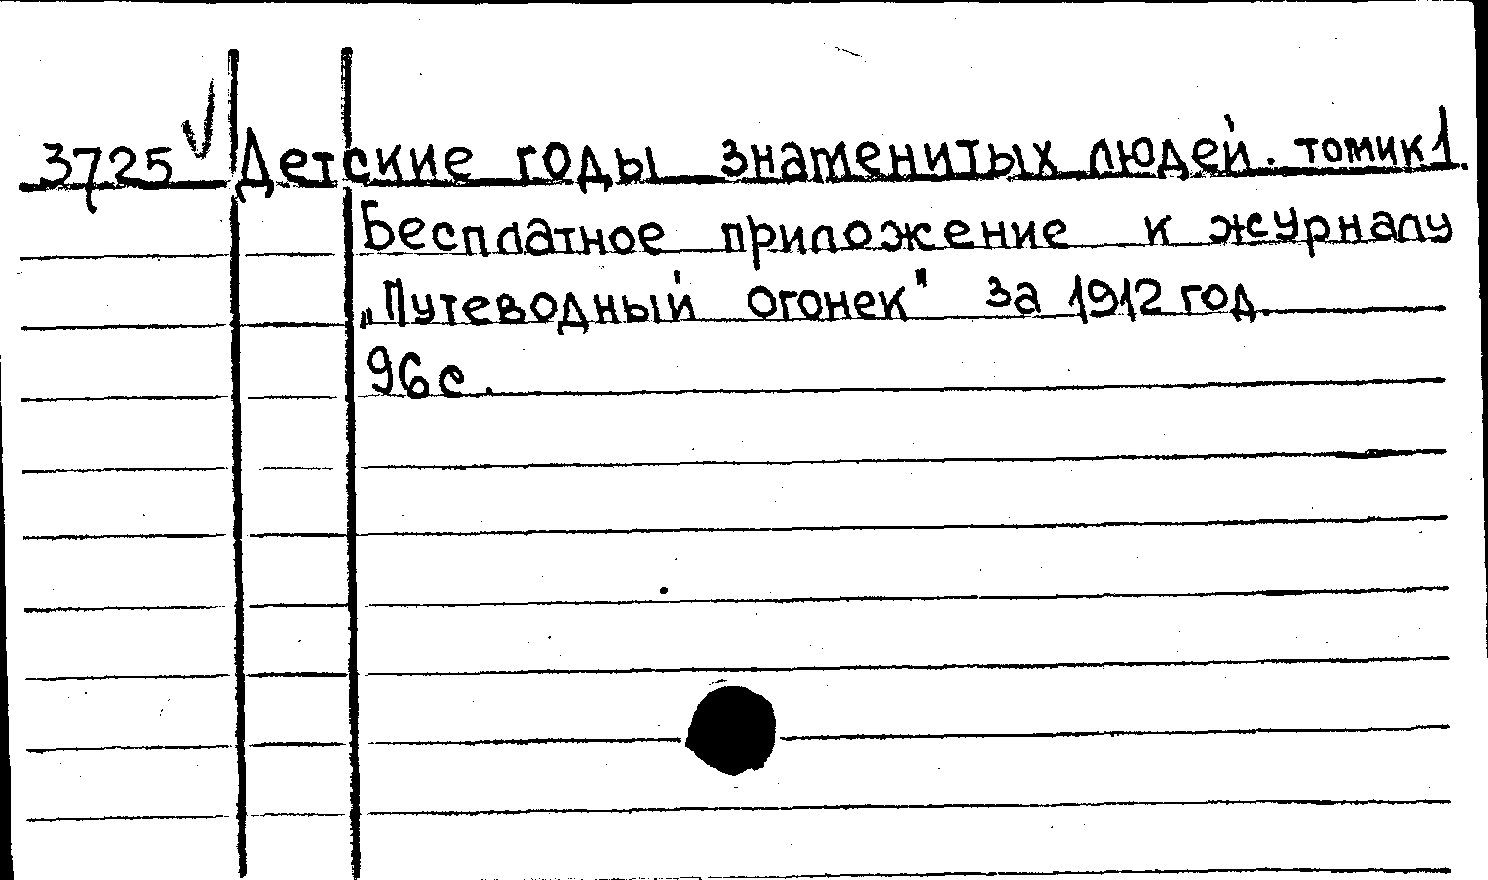 3725 Детские годы знаменитых людей. томик 1.
Бесплатное приложение к журналу
„Путеводный огонек" за 1912 год.
96 с.